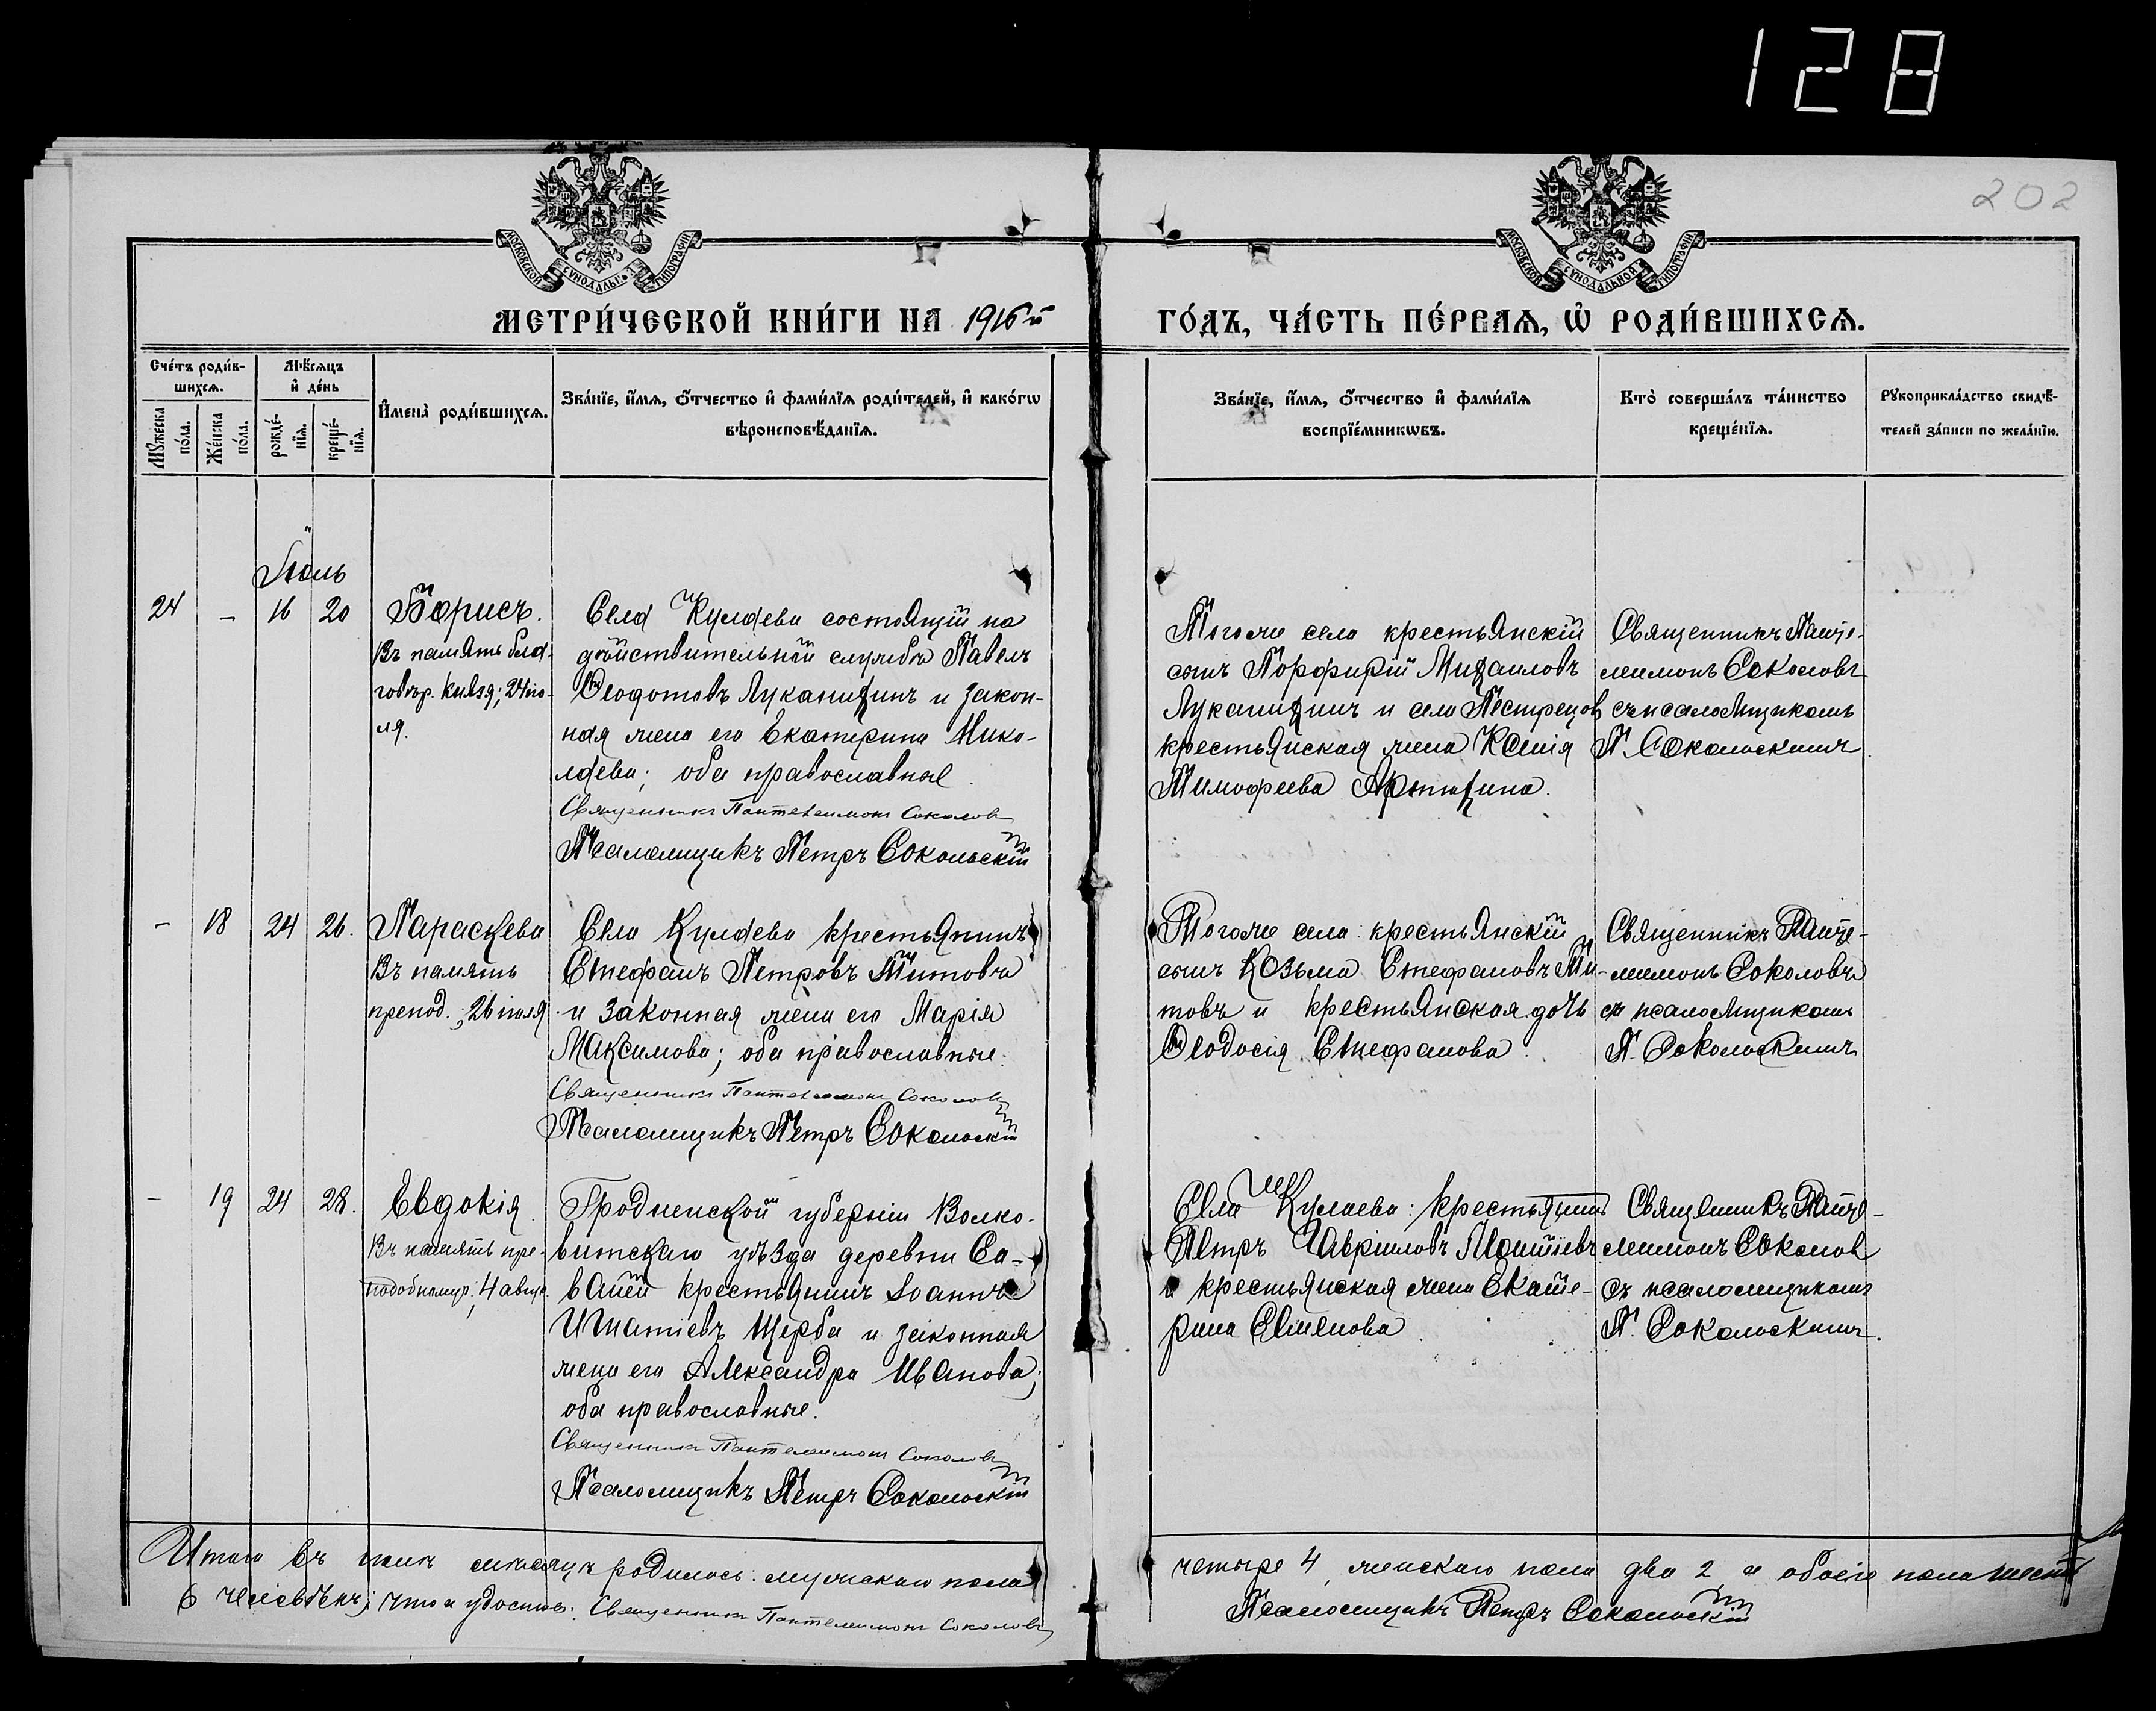 128
202
МОСКОВСКОЙ СѴНОДАЛЬНОЙ ТИПОГРАФІИ
МОСКОВСКОЙ СѴНОДАЛЬНОЙ ТИПОГРАФІИ
МЕТРИ́ЧЕСКОЙ КНИ́ГИ НА 1916й
ГО́ДЪ, ЧА́СТЬ ПЕ́РВАЯ, Ѡ РОДИ́ВШИХСЯ.
Сче́тъ роди́в-
шихся.
Мꙋ́жеска
по́ла.
Же́нска
по́ла.
Мѣ́сяцъ
и҆ де́нь
рожде́-
нїя.
креще́-
нїя.
И҆мена̀ роди́вшихся.
Зва́нїе, и҆́мя, ѻ҆́тчество и҆ фами́лїя роди́телей, и҆ како́гѡ
вѣроисповѣ́данїя.
Зва́нїе, и҆́мя, ѻ҆́тчество и҆ фами́лїя
воспрїе́мникѡвъ.
Кто̀ соверша́лъ та́инство
креще́нїя.
Рꙋкоприкла́дство свидѣ́-
телей за́писи по жела́нїю.
Іюль
24 – 16 20 Борисъ.
Въ память бла-
говѣр. князя; 24 ію-
ля.
Села Кулаева состоящій на
дѣйствительной службѣ Павелъ
Ѳеодотовъ Луканихинъ и закон-
ная жена его Екатерина Нико-
лаева; оба православные
Священникъ Пантелеимонъ Соколовъ
Псаломщикъ Петръ Сокольскій
Тогоже села крестьянскій
сынъ Порфирій Михаиловъ
Луканихинъ и села Пестрецов
крестьянская жена Ксенія
Тимофеева Артихина.
Священникъ Панте-
леимонъ Соколовъ
съ псаломщикомъ
П. Сокольскимъ
– 18 24 26. Параскева
Въ память
препод.; 26 іюля
Села Кулаева крестьянинъ
Стефанъ Петровъ Титовъ
и законная жена его Марія
Максимова; оба православные.
Священникъ Пантелеимонъ Соколовъ
Псаломщикъ Петръ Сокольскій
Тогоже села крестьянскій
сынъ Козьма Стефановъ Ти-
товъ и крестьянская дочь
Ѳеодосія Стефанова.
Священникъ Панте-
леимонъ Соколовъ
съ псаломщикомъ
П. Сокольскимъ
– 19 24 28. Евдокія
Въ память пре-
подобномуч.; 4 авгус.
Гродненской губерніи Волко-
витскаго уѣзда деревни Са-
крестьянинъ Іоаннъ
Игнатіевъ Щерба и законная
жена его Александра Иванова;
оба православные.
Священникъ Пантелеимонъ Соколовъ
Псаломщикъ Петръ Сокольскій
Села Кулаева: крестьянинъ
Петръ Гавриловъ
и крестьянская жена Екате-
рина Семенова
Священникъ Панте-
леимонъ Соколов
съ псаломщикомъ
П. Сокольскимъ.
Итого въ іюлѣ мѣсяцѣ родилось: мужскаго пола
четыре 4, женскаго пола два 2 и обоего пола шесть
6 человѣкъ; что и удостов. Священникъ Пантелеимонъ Соколовъ
Псаломщикъ Петръ Сокольскій